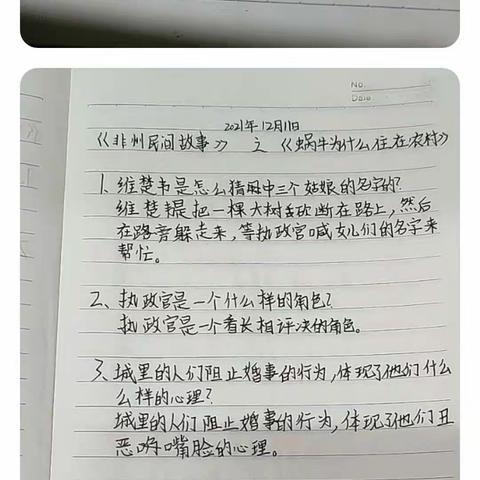 No.
Date
2021年12月11日
《非州民间故事》 之 《蜗牛为什么住在农村》
1、维楚韦是怎么猜中三个姑娘的名字的?
维楚韦是把一棵大树砍断在路上,然后
在路旁躲走来,等执政官喊女儿们的名字来
帮忙。
2、执政官是一个什么样的角色?
执政官是一个看长相评决的角色。
3、城里的人们阻止婚事的行为,体现了他们什么
么样的心理?
城里的人们阻止婚事的行为,体现了他们丑
恶嘴脸的心理。